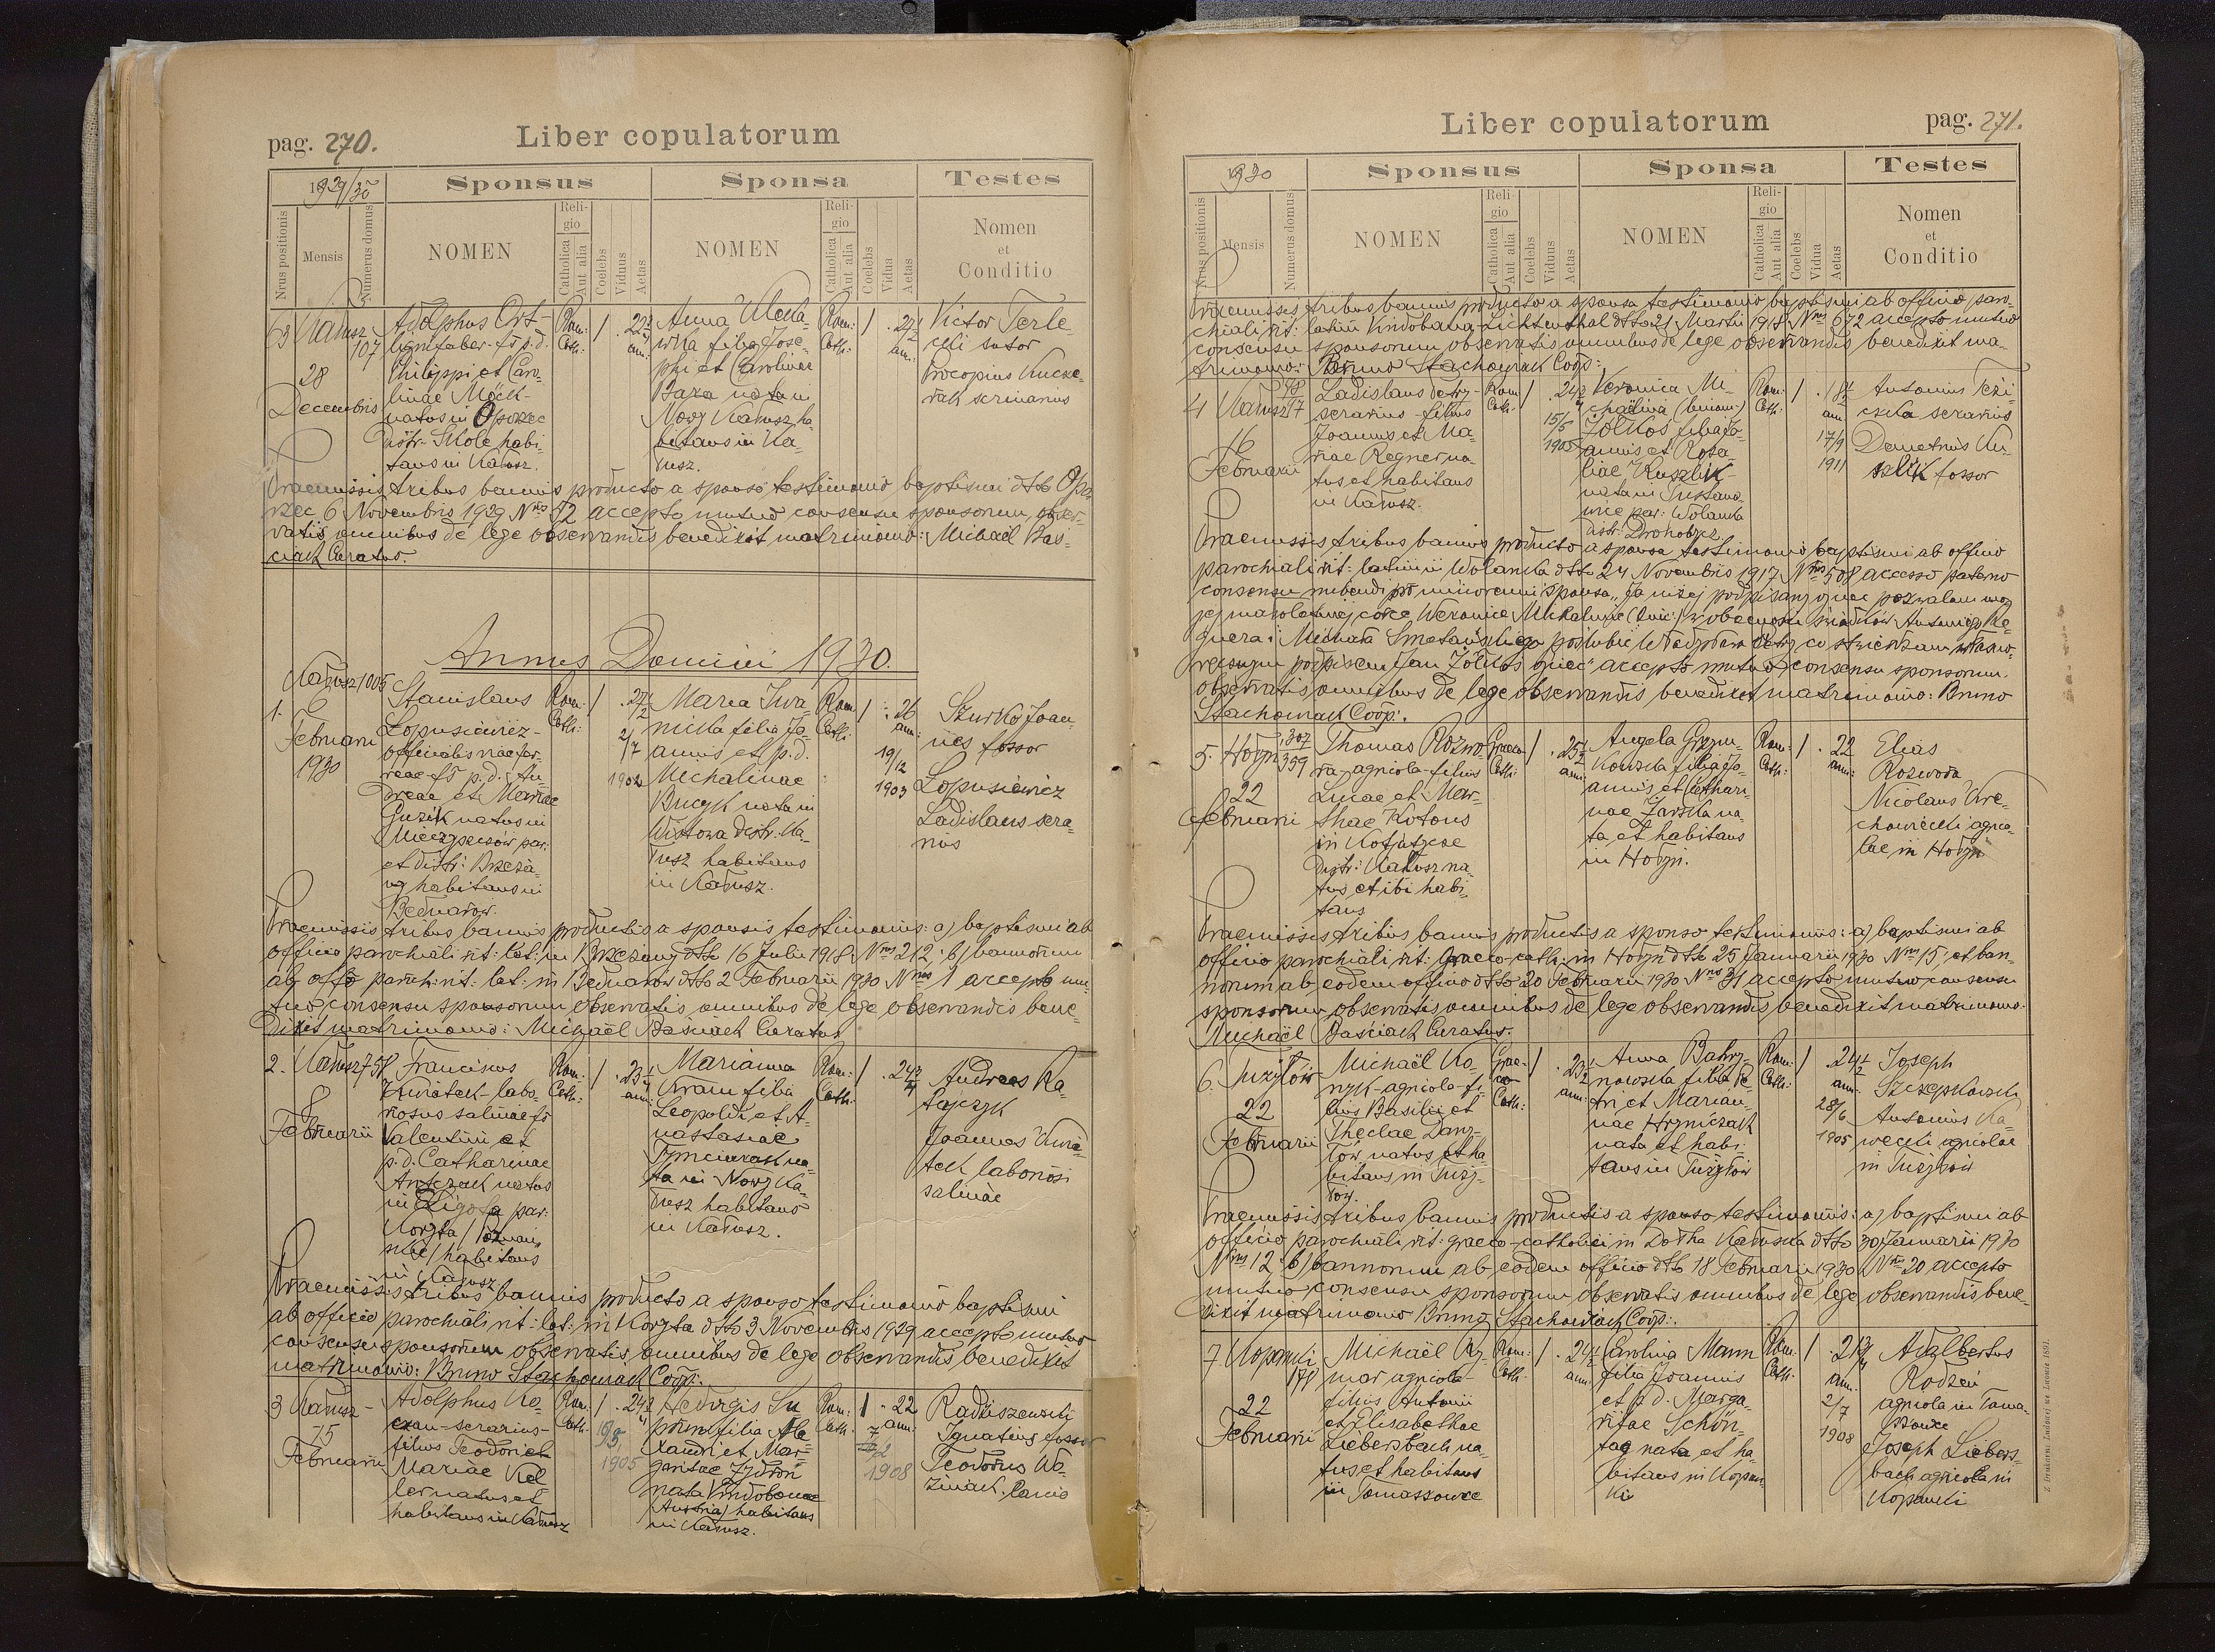 pag. 270.
Liber copulatorum
1929/30
Sponsus
Sponsa
Testes
Nrus positionis
Mensis
Numerus domus
NOMEN
Religio
Catholica
Aut alia
Coelebs
Viduus
Aetas
NOMEN
Religio
Catholica
Aut alia
Coelebs
Vidua
Aetas
Nomen
et
Conditio
63
Kałusz
107
28
Decembris
Adolphus Ort-
lignifaber - fs p.d.
Philippi et Caro-
linae Möck-
natus in Oporzec
distr. Skole habi-
tans in Kałusz.
Rom:
Cath:
1
Anna
wna filia Jose-
phi et Carolinae
Baza nata in
Nowy Kałusz ha-
bitans in Ka-
łusz.
Rom:
Cath:
Victor Terle-
cki sutor
Procopius
scrinarius
Praemissis tribus bannis producto a sponso testimonio baptismi dtto Opo-
rzec 6 Novembris 1929 Nrus 52 accepto mutuo consensu sponsorum, obser-
vatis omnibus de lege observandis benedixit matrimonio: Michaël Baś-
ciach Curatus.
Annus Domini 1930.
Kałusz 1005
1.
6
Februarii
1930
Stanislaus
Łopusiewicz-
officialis viae fer-
reae fs p.d. An-
dreae et Mariae
Guzik natus in
Mieczyszczów par:
et distr: Brzeża-
ny habitans in
Bednarów.
Rom:
Cath:
1
27 1/2
2/7
1902
Maria Iwa-
nicka filia Jo-
annis et p.d.
Michalinae
Bucyk nata in
Wistowa distr. Ka-
łusz habitans
in Kałusz.
Rom
Cath:
1
26
ann:
19/12
1903
Szurko Joan-
nes fossor
Łopusiewicz
Ladislaus sera-
rius
Praemissis tribus bannis productis a sponsis testimoniis: a) baptismi ab
officio parochiali rit: lat: in Brzeżany dtto 16 Julii 1918 Nrus 212. b) bannorum
ab offo paroch: rit: lat: in Bednarów dtto 2 Februarii 1930 Nrus 1 accepto mu-
tuo consensu sponsorum observatis omnibus de lege observandis bene-
dixit matrimonio: Michaël Baściach Curatus
2.
Kałusz 758
8
Februarii
Franciscus
Kwiatek - labo-
riosus salinae fs
Valentini et
p.d. Catharinae
Antczak natus
in Ligota par:
Korzta / Poznań-
skie / habitans
in Kałusz
Rom:
Cath:
1
Marianna
Kram filia
Leopoldi et A-
nastasiae
Tymciurak na-
ta in Nowy Ka-
łusz habitans
in Kałusz.
Rom:
Cath:
1
24 3/4
Andreas Ra-
tajczyk
Joannes Kwia-
tek laboriosi
salinae
Praemissis tribus bannis producto a sponso testimonio baptismi
ab officio parochiali rit: lat: in Korzta dtto 3 Novembris 1929 accepto mutuo
consensu sponsorum observatis omnibus de lege observandis benedixit
matrimonio: Bruno Stachowiak Coop:.
3
Kałusz-
15
Februarii
Adolphus Ko-
czan - serarius-
filius Teodori et
Mariae Kel-
ler natus et
habitans in Kałusz
Rom:
Cath:
1
1905
Hedvigis Su-
prun filia Ale-
xandri et Mar-
garitae Zydroń
nata Vindobonae
(Austria) habitans
in Kałusz.
Rom:
Cath:
1
22
ann:
1908
Radziszewski
Ignatius fossor
Teodorus Wo-
źniak. lanio
pag. 271.
Liber copulatorum
1930
Sponsus
Sponsa
Testes
Nrus positionis
Mensis
Numerus domus
NOMEN
Religio
Catholica
Aut alia
Coelebs
Viduus
Aetas
NOMEN
Religio
Catholica
Aut alia
Coelebs
Vidua
Aetas
Nomen
et
Conditio
Praemissis tribus bannis producto a sponsa testimonio baptismi ab officio paro-
chiali rit: latini Vindobona-Lichtenthal dtto 21 Martii 1918 Nrus 672 accepto mutuo
consensu sponsorum observatis omnibus de lege observandis benedixit ma-
trimonio: Bruno Stachowiak Coop:.
4
Kałusz
16
Februarii
Ladislaus
serarius - filius
Joannis et Ma-
riae Regner na-
tus et habitans
in Kałusz.
Rom
Cath:
1
24 3/4
15/5
1905
Veronica Mi-
chalina (binom)
Żółkoś filia Jo-
annis et Rosa-
liae Kuszlik
nata in Trustano-
wice par: Wolanka
distr: Drohobycz
Rom
Cath:
1
ann
17/9
1911
Antonius
serarius
Demetrius Ku-
szlik fossor
Praemissis tribus bannis producto a sponsa testimonio baptismi ab officio
parochiali rit: latini in Wolanka dtto 24 Novembris 1917 Nrus 508 accesso paterno
consensu nubendi pro minorenni sponsa „Ja niżej podpisany ojciec pozwalam mo-
jej małoletniej córce Weronice Michalinie (2 im:) w obecności świadków Antoniego Re-
gnera i Michała Smetańskiego poślubić Władysława co stwierdzam własno-
ręcznym podpisem Jan Żółkoś ojciec" accepto mutuo consensu sponsorum.
observatis omnibus de lege observandis benedixit matrimonio: Bruno
Stachowiak Coop:.
5.
Hołyń
307
359
22
Februarii
Thomas Rozwo-
ra - agricola - filius
Lucae et Mar-
thae Kotons
in Kotiatycze
Distr: Kałusz na-
tus et ibi habi-
tans
Graeco
Cath:
1
25 1/2
ann:
Angela Grzym-
kowska filia Jo-
annis et Cathari-
nae Żarska na-
ta et habitans
in Hołyń.
Rom:
Cath:
1
22
ann:
Elias
Rozwora
Nicolaus Kre-
chowiecki agrico-
lae in Hołyń
Praemissis tribus bannis productis a sponso testimoniis: a) baptismi ab
officio parochiali rit: Graeco-cath: in Hołyń dtto 25 Januarii 1930 Nrus 15, et ban-
norum ab eodem officio dtto 20 Februarii 1930 Nrus 31 accepto mutuo consensu
sponsorum observatis omnibus de lege observandis benedixit matrimonio:
Michaël Baściach Curatus.
6.
Tużyłów
22
Februarii
Michaël Ko-
nyk - agricola - fi-
lius Basilii et
Theclae Dany-
łów natus et ha-
bitans in Tuży-
łów.
Grae-
co
Cath:
1
23 1/2
ann:
Anna Bahry-
nowska filia Pe-
tri et Marian-
nae Hryniczak
nata et habi-
tans in Tużyłów
Rom:
Cath:
1
24 1/2
ann:
28/6
1905
Joseph
Szczepkowski
Antonius Ka-
wecki agricolae
in Tużyłów
Praemissis tribus bannis productis a sponso testimoniis: a) baptismi ab
officio parochiali rit: graeco-catholici in Dołha Kałuska dtto 30 Januarii 1930
Nrus 12. b) bannorum ab eodem officio dtto 18 Februarii 1930 Nrus 20 accepto
mutuo consensu sponsorum observatis omnibus de lege observandis bene-
dixit matrimonio Bruno Stachowiak Coop:.
7
Kopanki
22
Februarii
Michaël Ry-
mar agricola-
filius Antonii
et Elisabethae
Liebersbach na-
tus et habitans
in Tomaszowce
Rom:
Cath.
1
24 1/2
ann:
Carolina Mann
filia Joannis
et p.d. Marga-
ritae Schön-
tag nata et ha-
bitans in Kopan-
ki
Rom:
Cath:
1
21 3/4
ann.
2/7
1908
Adalbertus
Rodzeń
agricola in Toma-
szowce
Joseph Liebers-
bach agricola in
Kopanki
Z Drukarni Ludowej we Lwowie 1891.